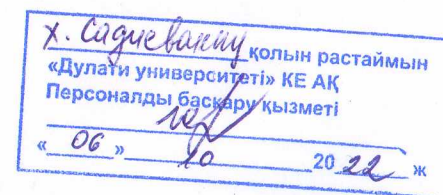 Х. Садиеваның қолын растаймын
«Дулати университеті» КЕ АҚ
Персоналды басқару қызметі
« 06 » 10 20 22 ж